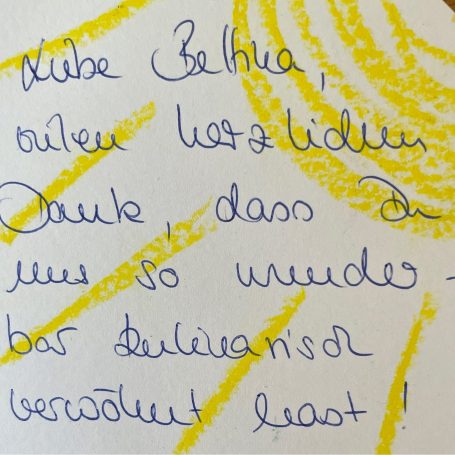 Liebe Bettina,
vielen herzlichen
Dank, dass Du
uns so wunder-
bar kulinarisch
verwöhnt hast!